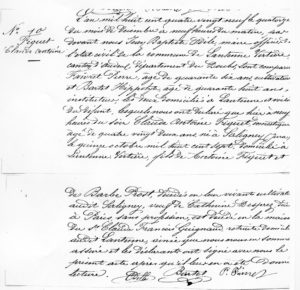 N° 10
Piquet
Claude Antoine
L'an mil huit cent quatre vingt neuf le quatorze
du mois de Décembre à neuf heures du matin, par
devant nous Jean Baptiste officier
de l'état civil de la commune de Lantenne Vertière,
canton d'Audeux, département du Doubs, sont comparus
Pierre, âgé de quarante six ans cultivateur
et Hippolyte, âgé de quarante huit ans,
instituteur, les deux domiciliés à Lantenne et amis
du défunt, lesquels nous ont déclaré que hier à neuf
heures du soir Claude Antoine domestique
âgé de quatre vingt deux ans né à Saligney, Jura
le quinze octobre mil huit cent sept, domicilié à
Lantenne Vertière, fils de et
De Barbe Prost, tandis en leur vivant cultivateurs
audit Saligney, veuf de Catherine
à Paris, sans profession, est décédé en la maison
du Sr Claude Francois Guignard domicilié
audit Lantenne, ainsi que nous nous en sommes
assuré et les déclarants ont signé avec nous le
présent acte après qu'il leur en a été donné
lecture.
P.